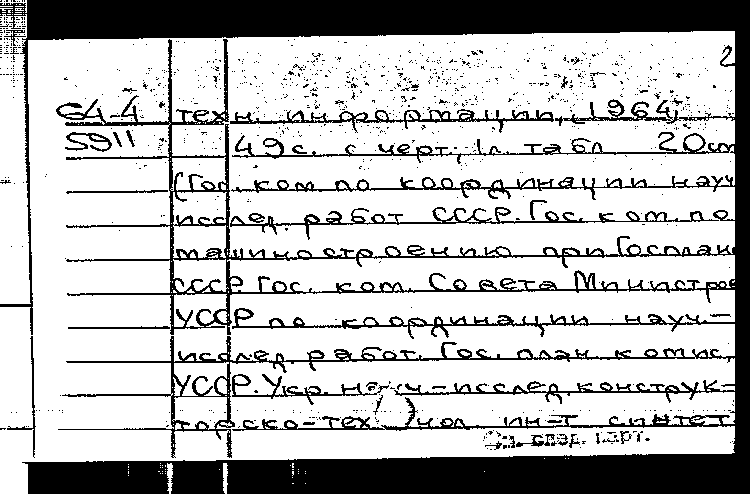 2
64-4 техн. информации, 1964,
5911 49 с. с черт; 1 л. табл 20 см
(Гос. ком. по координации науч
исслед. работ СССР. Гос. ком. по
машиностроению при Госплан
СССР Гос. ком. Совета Министров
УССР по координации науч.-
исслед. работ. Гос. план комис.
УССР. Укр. науч-исслед. конструк-
торско-технол ин-т синтет
См. след. карт.